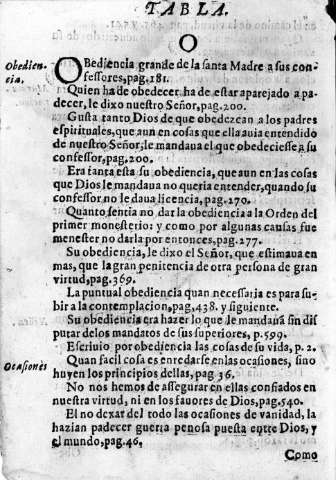 TABLA.
O
Obediencia.
OBediencia grande de la santa Madre a sus con-
fessores, pag, 181.
Quien ha de obedecer, ha de estar aparejado a pa-
decer, le dixo nuestro Señor, pag. 200.
Gusta tanto Dios de que obedezcan a los padres
espirituales, que aun en cosas que ella auia entendido
de nuestro Señor, le mandaua el que obedeciesse a su
confessor, pag, 200.
Era tanta esta su obediencia, que aun en las cosas
que Dios le mandaua no queria entender, quando su
confessor no le daua licencia, pag. 270.
Quanto sentia no dar la obediencia a la Orden del
primer monesterio: y como por algunas causas fue
menester no darla por entonces, pag. 277.
Su obediencia, le dixo el Señor, que estimaua en
mas, que la gran penitencia de otra persona de gran
virtud, pag. 369.
La puntual obediencia quan necessaria es para su-
bir a la contemplacion, pag, 438. y siguiente.
Su obediencia era hazer lo que le mandauã sin dis
putar de los mandatos de sus superiores, p. 599.
Escriuio por obediencia las cosas de su vida, p. 2.
Ocasiones
Quan facil cosa es enredarse en las ocasiones, sino
huyen los principios dellas, pag 36.
No nos hemos de assegurar en ellas confiados en
nuestra virtud, ni en los fauores de Dios, pag. 540.
El no dexar del todo las ocasiones de vanidad, la
hazian padecer guerra penosa puesta entre Dios, y
el mundo, pag. 46,
Como